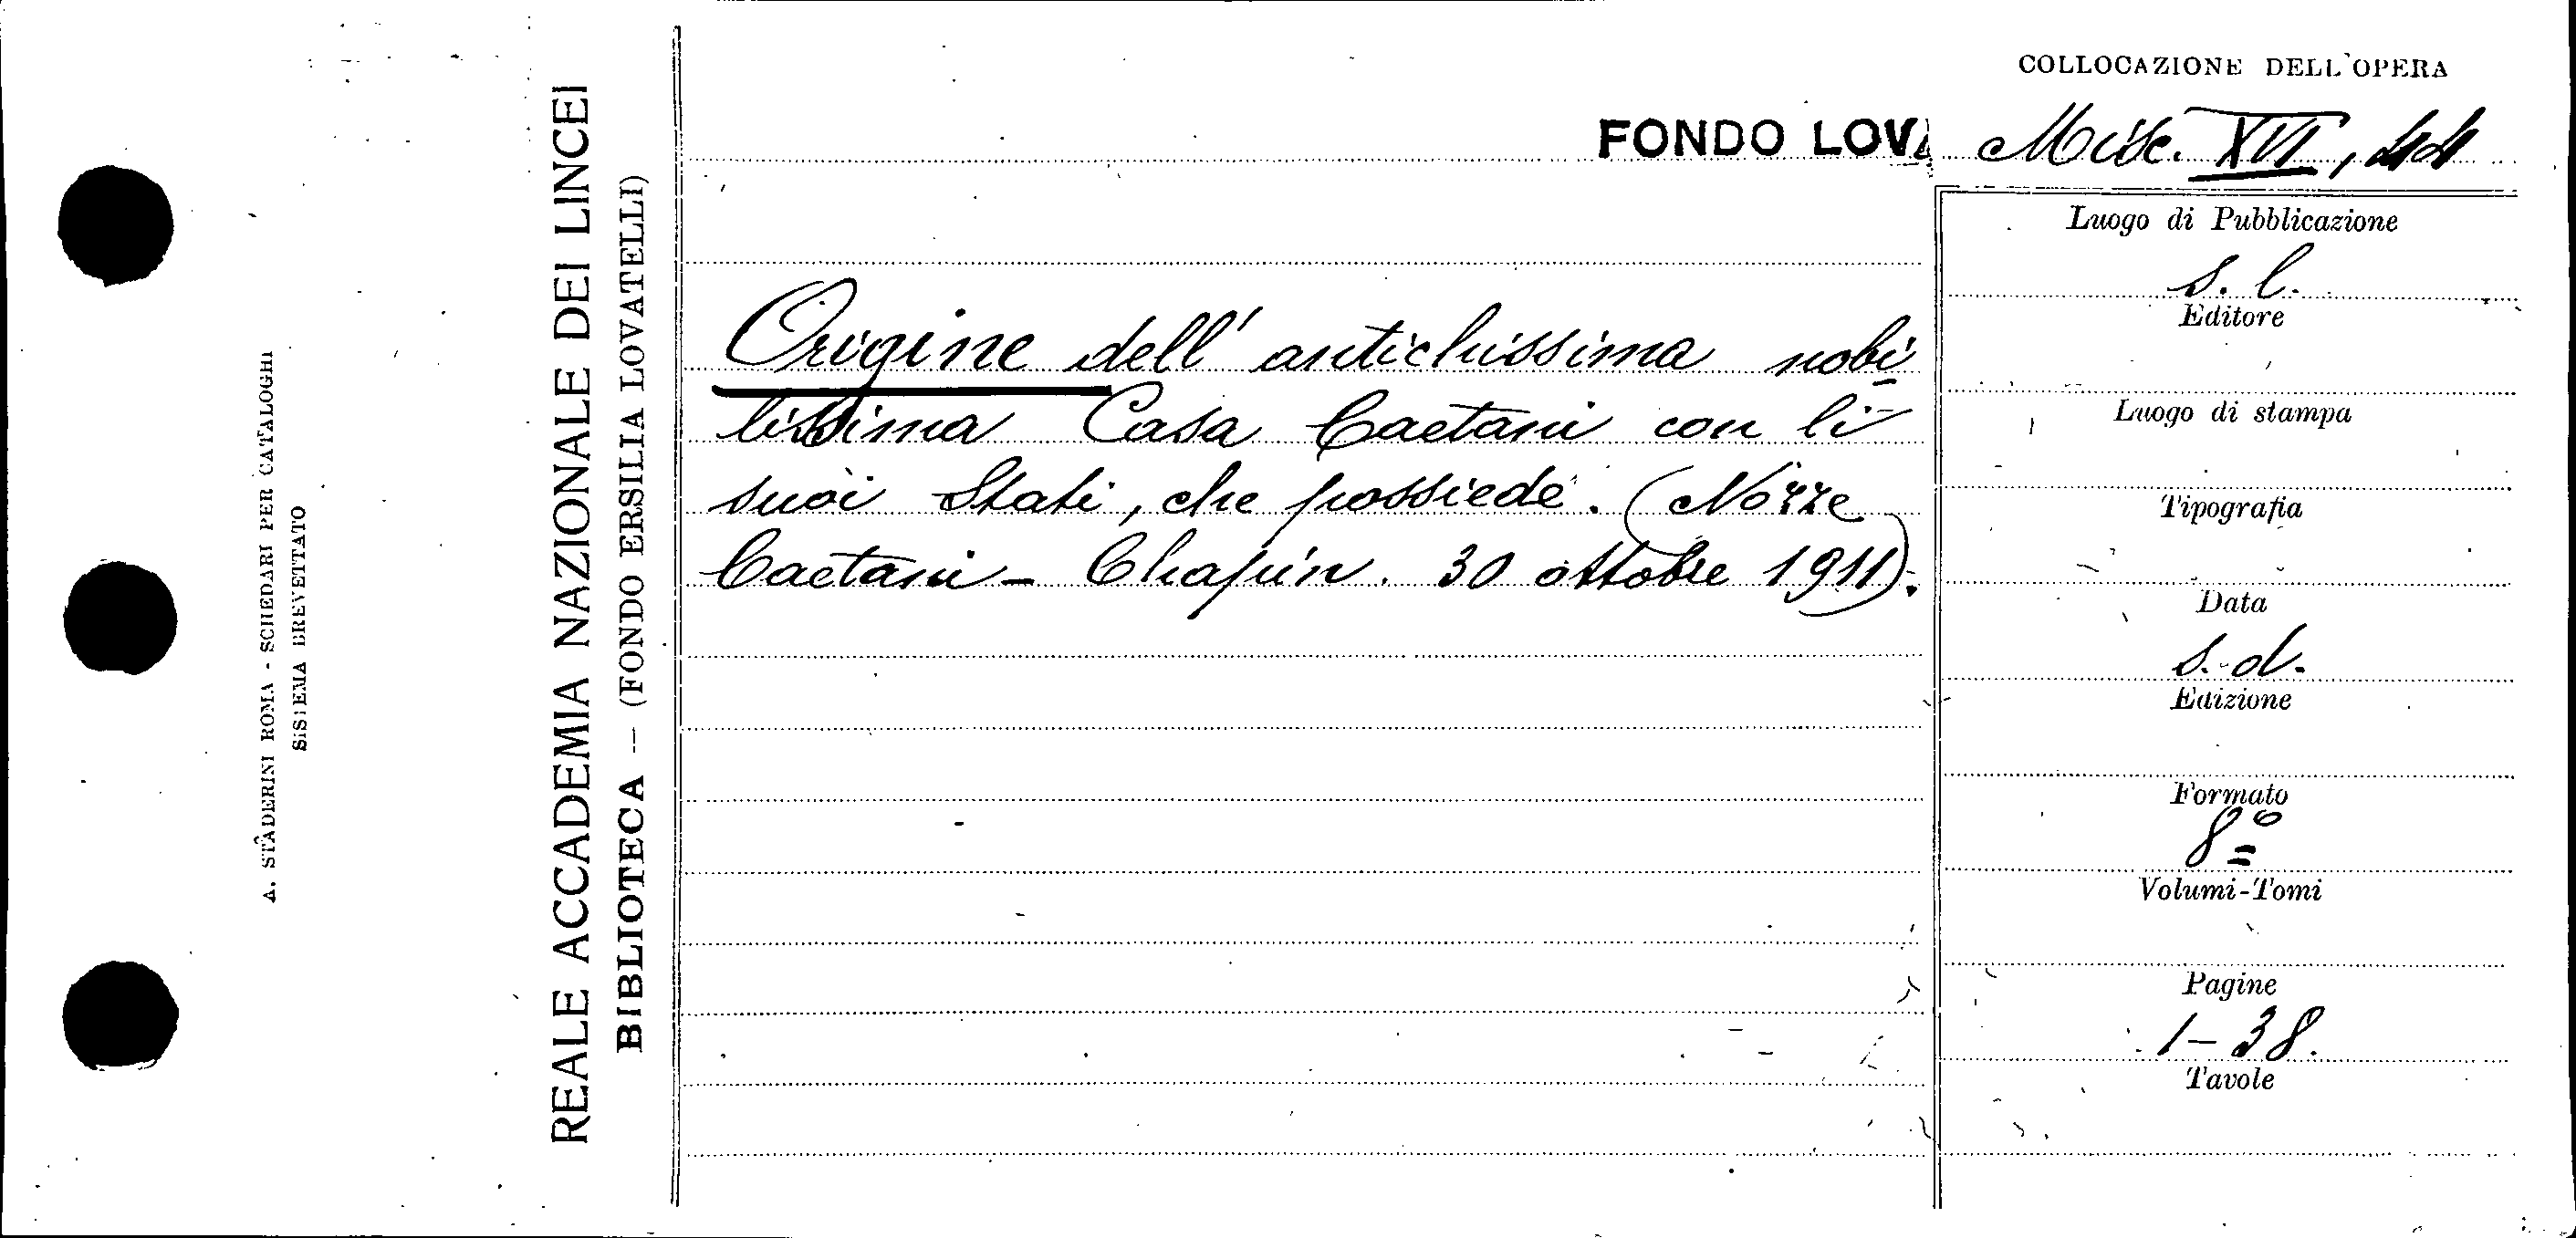 A. STADERINI ROMA - SCHEDARI PER CATALOGHI
SISTEMA BREVETTATO
REALE ACCADEMIA NAZIONALE DEI LINCEI
BIBLIOTECA — (FONDO ERSILIA LOVATELLI)
FONDO LOVA
Origine dell' antichissima nobi
lissima Casa Caetani con li
suoi Stati, che possiede. (Nozze
Caetani - Chapin. 30 ottobre 1911).
COLLOCAZIONE DELL'OPERA
Misc. XVI, 44
Luogo di Pubblicazione
s. l.
Editore
Luogo di stampa
Tipografia
Data
s. d.
Edizione
Formato
8º
Volumi-Tomi
Pagine
1-38.
Tavole